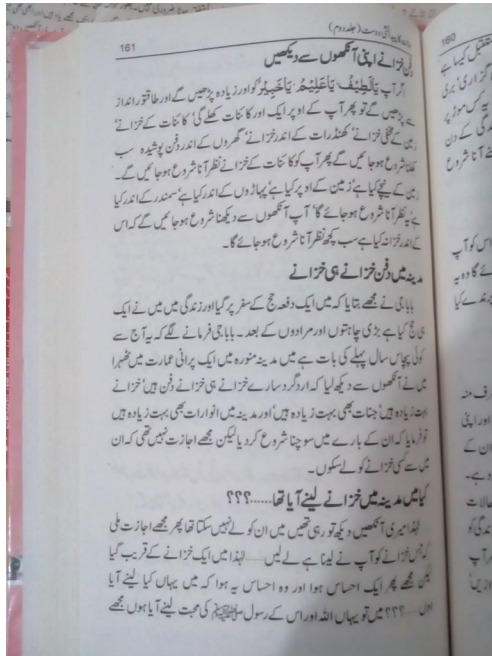 161
پیدائشی دوست (جلد دوم)
دفن خزانے اپنی آنکھوں سے دیکھیں
اگر آپ یَالَطِیْفُ یَاعَلِیْمُ یَاخَبِیْرُ کو اور زیادہ پڑھیں گے اور طاقتور انداز
سے پڑھیں گے تو پھر آپ کے اوپر ایک اور کائنات کھلے گی' کائنات کے خزانے'
زمین کے مخفی خزانے' کھنڈرات کے اندر خزانے' گھروں کے اندر دفن پوشیدہ سب
کھلنا شروع ہوجائیں گے پھر آپ کو کائنات کے خزانے نظر آنا شروع ہوجائیں گے۔
زمین کے نیچے کیا ہے' زمین کے اوپر کیا ہے' پہاڑوں کے اندر کیا ہے' سمندر کے اندر کیا
ہے' یہ نظر آنا شروع ہوجائے گا' آپ آنکھوں سے دیکھنا شروع ہوجائیں گے کہ اس
کے اندر خزانہ کیا ہے سب کچھ نظر آنا شروع ہوجائے گا۔
مدینہ میں دفن خزانے ہی خزانے
باباجی نے مجھے بتایا کہ میں ایک دفعہ حج کے سفر پر گیا اور زندگی میں میں نے ایک
ہی حج کیا ہے بڑی چاہتوں اور مرادوں کے بعد۔ باباجی فرمانے لگے کہ یہ آج سے
کوئی پچاس سال پہلے کی بات ہے میں مدینہ منورہ میں ایک پرانی عمارت میں ٹھہرا
میں نے آنکھوں سے دیکھ لیا کہ اردگرد سارے خزانے ہی خزانے دفن ہیں' خزانے
بہت زیادہ ہیں' جنات بھی بہت زیادہ ہیں' اور مدینہ میں انوارات بھی بہت زیادہ ہیں
تو فرمایا کہ ان کے بارے میں سوچنا شروع کردیا لیکن مجھے اجازت نہیں تھی کہ ان
میں سے کسی خزانے کو لے سکوں۔
کیا میں مدینہ میں خزانے لینے آیا تھا......؟؟؟
لہٰذا میری آنکھیں دیکھ تو رہی تھیں میں ان کو لے نہیں سکتا تھا پھر مجھے اجازت ملی
کہ جس خزانے کو آپ نے لینا ہے لے لیں...... لہٰذا میں ایک خزانے کے قریب گیا
لیکن مجھے پھر ایک احساس ہوا اور وہ احساس یہ ہوا کہ میں یہاں کیا لینے آیا
ہوں......؟؟؟ میں تو یہاں اللہ اور اس کے رسول ﷺ کی محبت لینے آیا ہوں مجھے
160